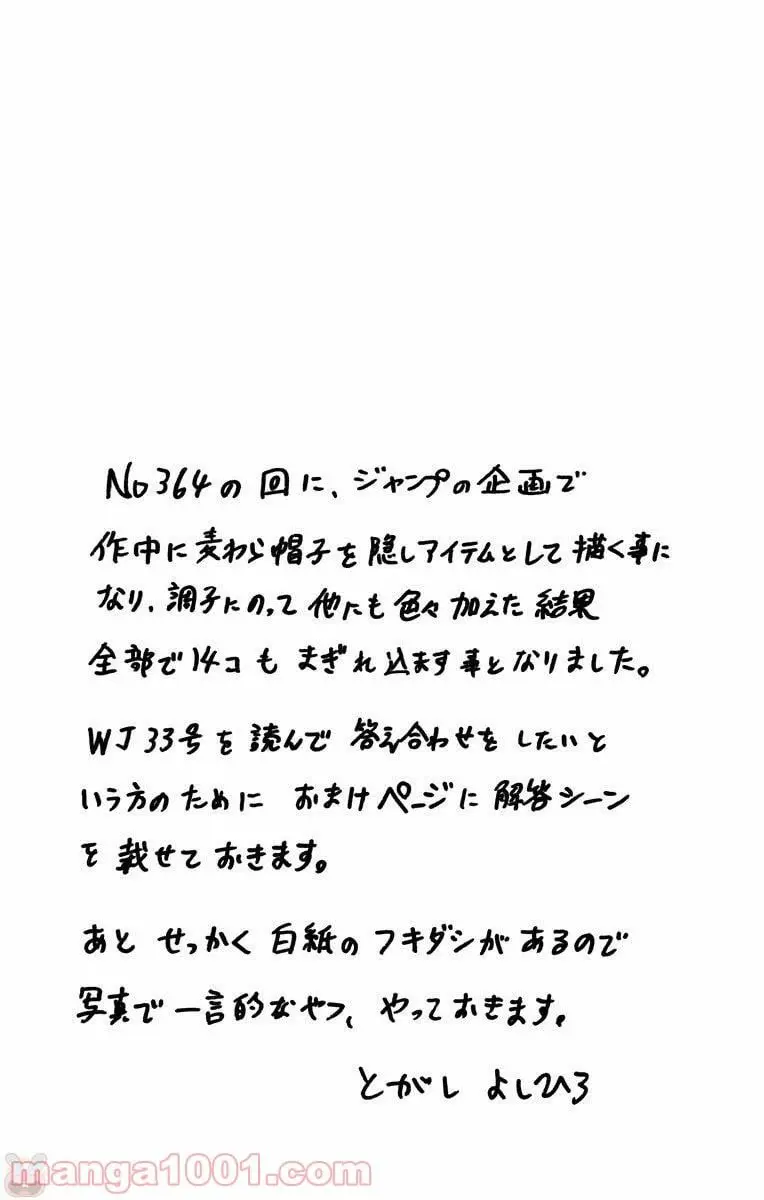 No364の回に、ジャンプの企画で
作中に麦わら帽子を隠しアイテムとして描く事に
なり、調子にのって他にも色々加えた結果
全部で14コもまぎれ込ます事となりました。
WJ33号を読んで答え合わせをしたいと
いう方のためにおまけページに解答シーン
を載せておきます。
あとせっかく白紙のフキダシがあるので
写真で一言的なやつ、やっておきます。
とがしよしひろ
manga1001.com